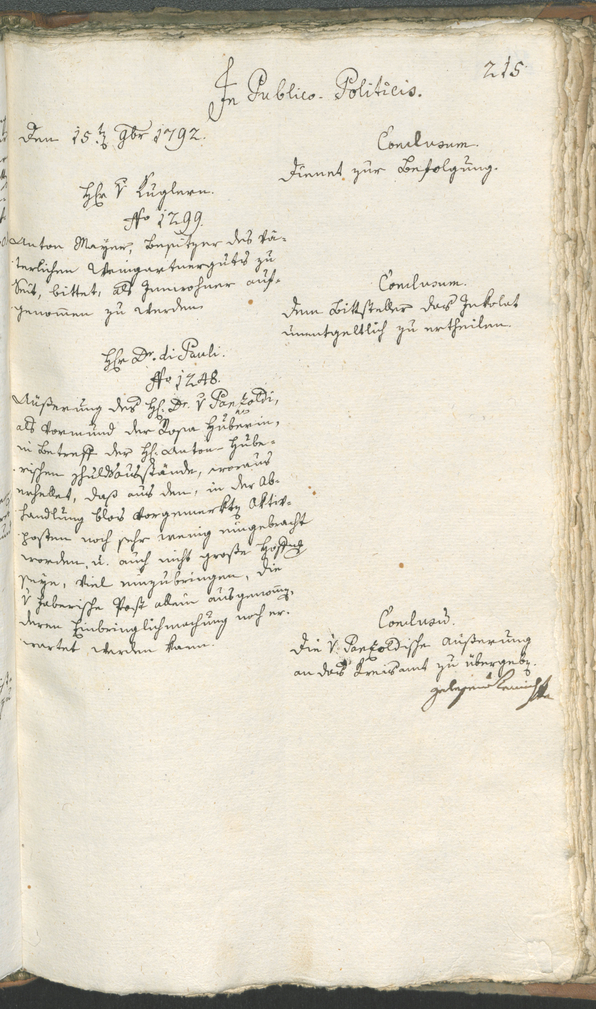 215
In Publico-Politicis.
Den 15t. 9br 1792.
Conclusum.
Dienet zur Befolgung.
Hr v Kuglern.
No 1299.
Anton Mayer, Besitzer des vä-
terlichen Weingartnerguts zu
bittet, als Innwohner auf-
genommen zu werden.
Conclusum.
Dem Bittsteller das Inkolat
unentgeltlich zu ertheilen.
Hr Dr. di Pauli.
No 1248.
Äußerung des H. Dr. v
als Vormund der Rosa Huberin,
in Betreff der H. Anton Hube-
rischen Schuldausstände, woraus
erhellet, daß aus den, in der Ab-
handlung blos vorgemerkten Aktiv-
posten noch sehr wenig eingebracht
worden, u. auch nicht große Hoffng
seye, viel einzubringen, die
v Faberische Post allein ausgenomm,
deren Einbringlichmachung noch er-
wartet werden kann.
Conclusu.
Die v. Äußerung
an das Kreisamt zu übergeben.